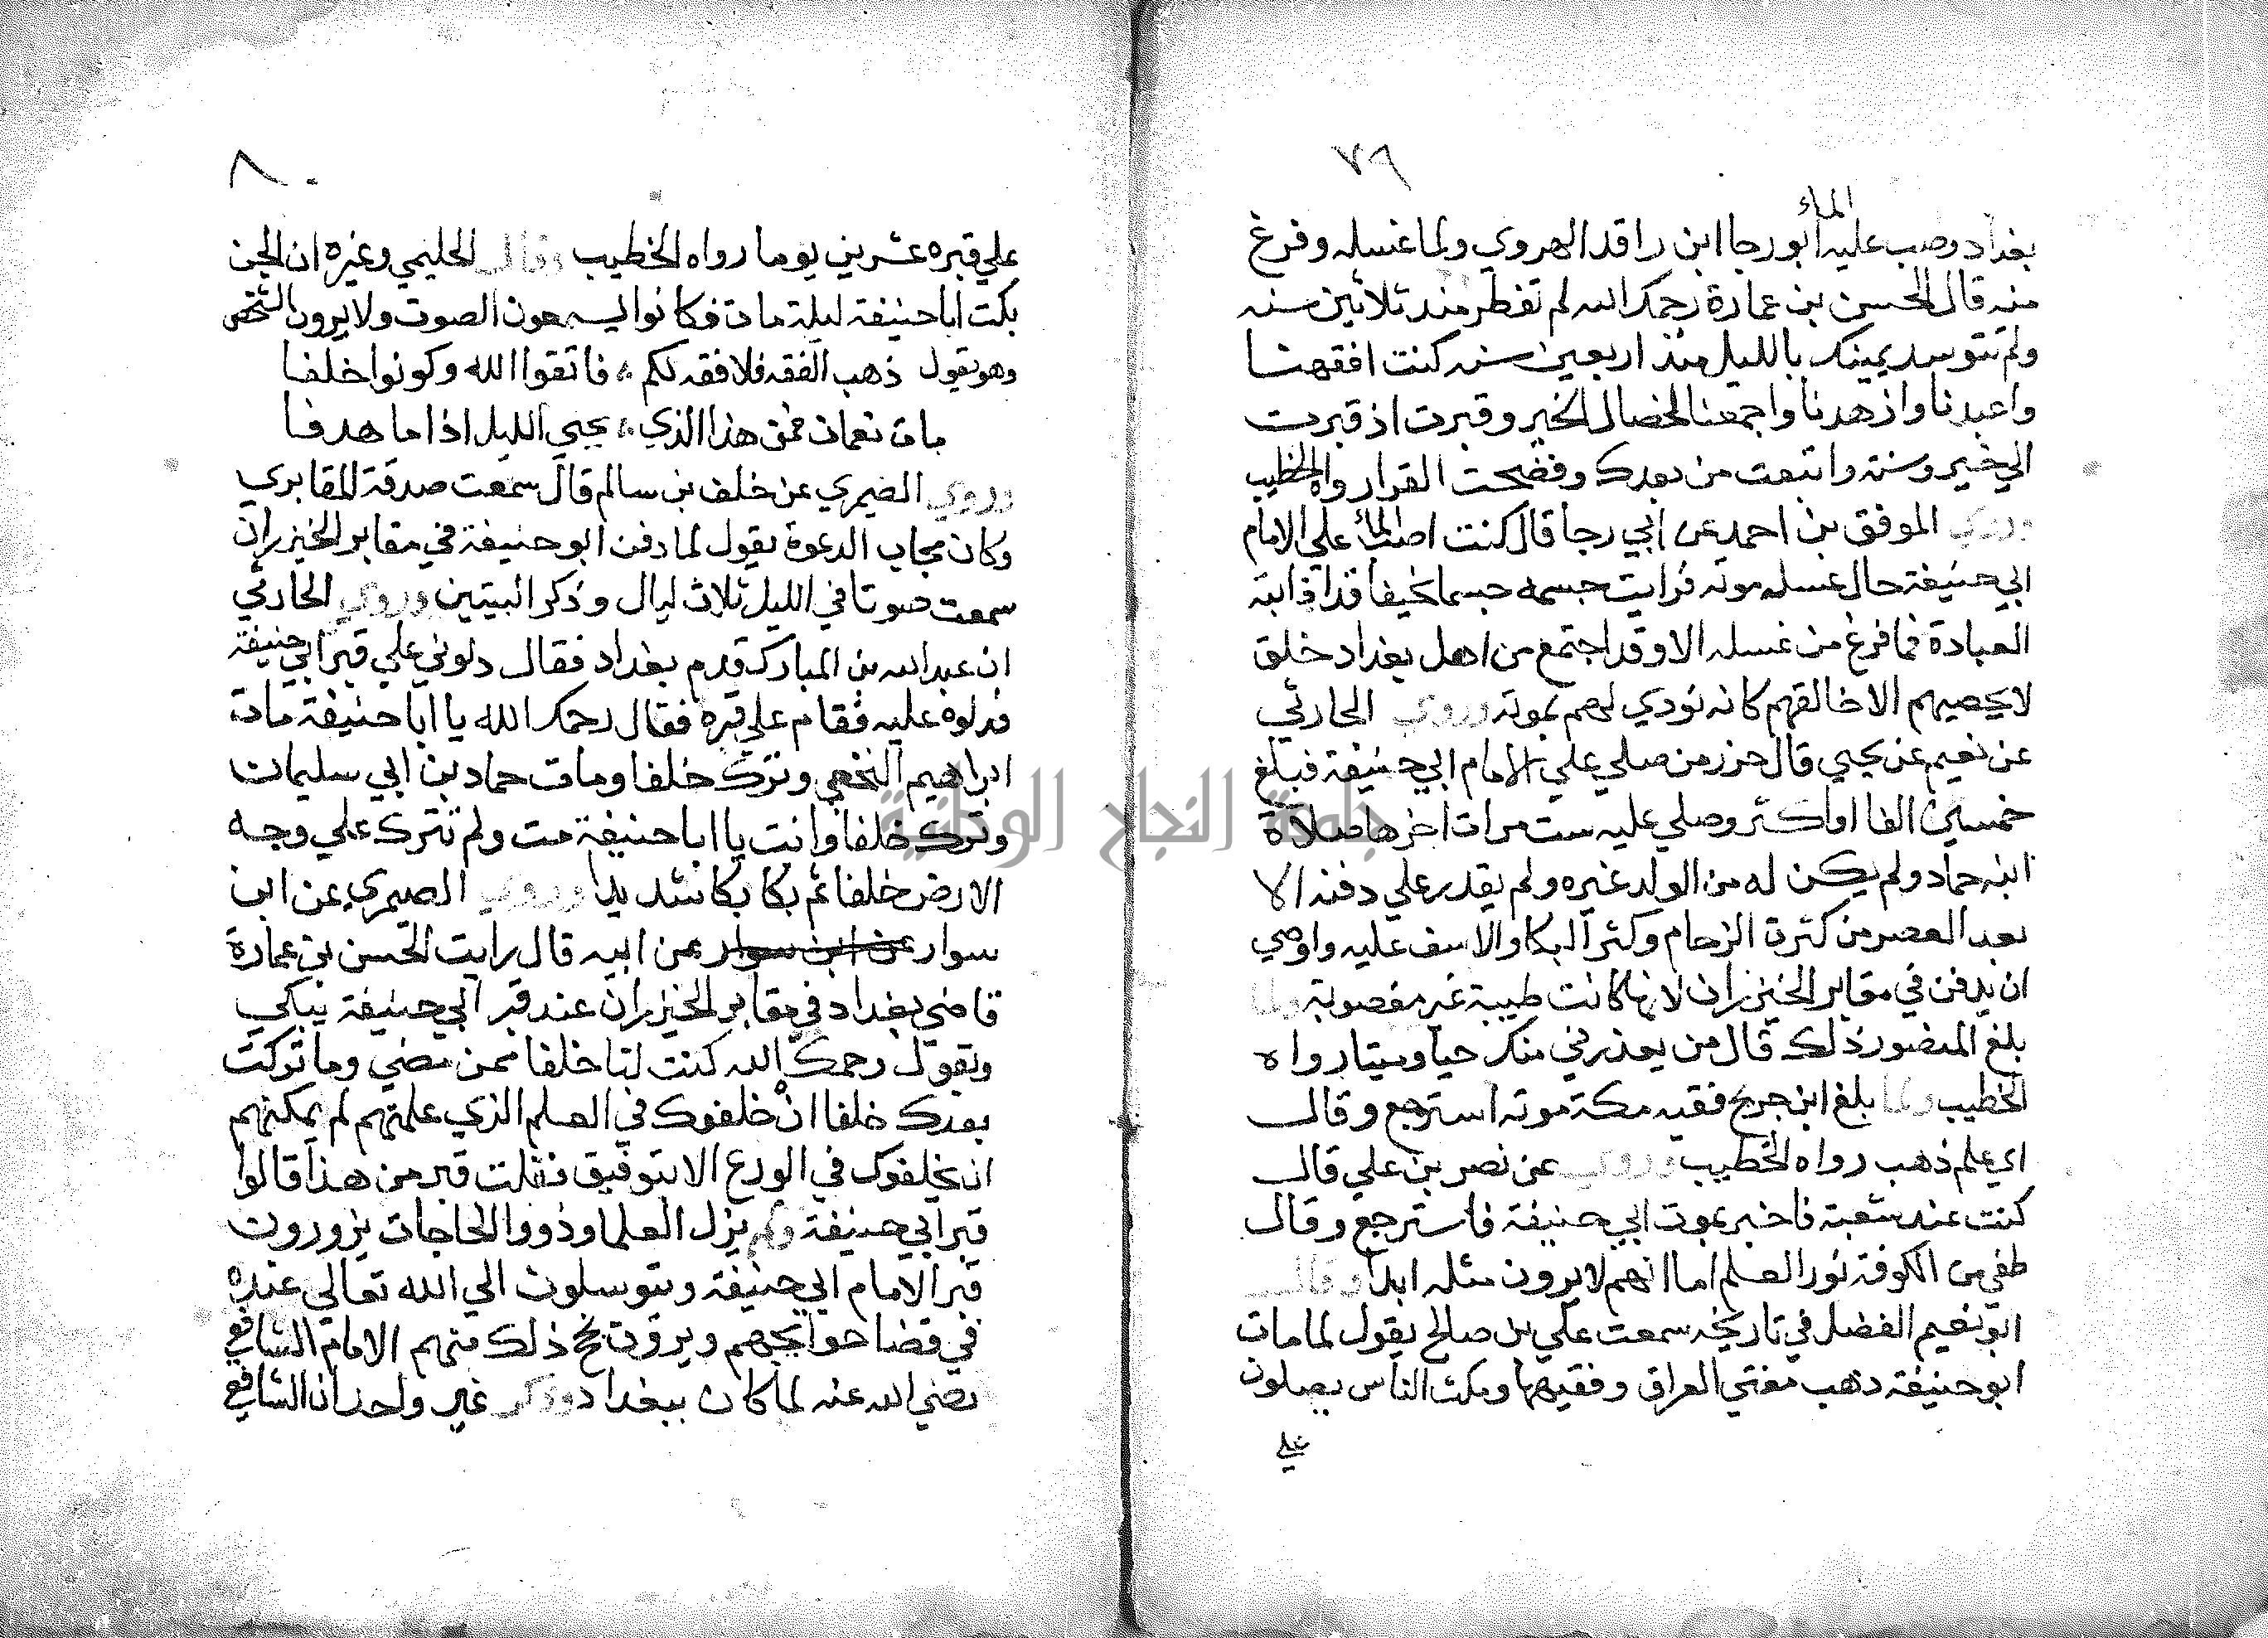 ٧٩
الماء
بغداد وصب عليه ابو رجا ابن راقد الهروي ولما غسله وفرغ
منه قال الحسن بن عمارة رحمك الله لم تفطر منذ ثلاثين سنه
ولم تتوسد يمينك بالليل منذ اربعين سنه كنت افقهنا
واعبدنا وازهدنا واجمعنا لخصال الخير وقبرت اذ قبرت
الي خير وسنة واتبعت من بعدك وفضحت القرا رواه الخطيب
وروي الموفق بن احمد عن ابي رجا قال كنت اصب الماء علي الامام
ابي حنيفة حال غسله موته فرايت جسمه جسما نحيفا قد اذابته
العبادة فما فرغ من غسله الا وقد اجتمع من اهل بغداد خلق
لا يحصيهم الا خالقهم كانه نودي لهم بموته وروي الحارثي
عن نعيم عن يحيي قال حزر من صلي علي الامام ابي حنيفة فبلغ
خمسين الفا او اكثر وصلي عليه ست مرات اخرها صلاة
ابنه حماد ولم يكن له من الولد غيره ولم يقدر علي دفنه الا
بعد العصر من كثرة الزحام وكثر البكا والاسف عليه واوصي
ان يدفن في مقابر الخيزران لانها كانت طيبة غير مغصوبة ولما
بلغ المنصور ذلك قال من يعذرني منك حيا وميتا رواه
الخطيب ولما بلغ ابن جريج فقيه مكة موته استرجع وقال
اي علم ذهب رواه الخطيب وروي عن نصر بن علي قال
كنت عند شعبة فاخبر بموت ابي حنيفة فاسترجع وقال
طفي من الكوفة نور العلم اما انهم لا يرون مثله ابدا وقال
ابو نعيم الفضل في تاريخه سمعت علي بن صالح يقول لما مات
ابو حنيفة ذهب مفتي العراق وفقيهها ومكث الناس يصلون
علي
٨٠
علي قبره عشرين يوما رواه الخطيب وقال الحليمي وغيره ان الجن
بكت ابا حنيفة ليلة مات فكانوا يسمعون الصوت ولا يرون الشخص
وهو يقول ذهب الفقه فلا فقه لكم ؞ فاتقوا الله وكونوا خلفا
مات نعمان فمن هذا الذي ؞ يحيي الليل اذا ما هدفا
وروي الصيمري عن خلف بن سالم قال سمعت صدقة المقابري
وكان مجاب الدعوة يقول لما دفن ابو حنيفة في مقابر الخيزران
سمعت صوتا في الليل ثلاث ليال وذكر البيتين وروي الحارثي
ان عبد الله بن المبارك قدم بغداد فقال دلوني علي قبر ابي حنيفة
فدلوه عليه فقام علي قبره فقال رحمك الله يا ابا حنيفة مات
ابراهيم النخعي وترك خلفا ومات حماد بن ابي سليمان
وترك خلفا وانت يا ابا حنيفة مت ولم تترك علي وجه
الارض خلفا ثم بكا بكا شديدا وروي الصيمري عن ابن
سوار عن ابن سوار عن ابيه قال رايت الحسن بن عمارة
قاضي بغداد في مقابر الخيزران عند قبر ابي حنيفة يبكي
ويقول رحمك الله كنت لنا خلفا ممن مضي وما تركت
بعدك خلفا ان خلفوك في العلم الذي علمتهم لم يمكنهم
ان يخلفوك في الورع الا بتوفيق فقلت قبر من هذا قالوا
قبر ابي حنيفة ولم يزل العلما وذووا الحاجات يزورون
قبر الامام ابي حنيفة ويتوسلون الي الله تعالي عنده
في قضا حوايجهم ويرون نجح ذلك منهم الامام الشافعي
رضي الله عنه لما كان ببغداد وذكر غير واحد ان الشافعي
جامعة النجاح الوطنية